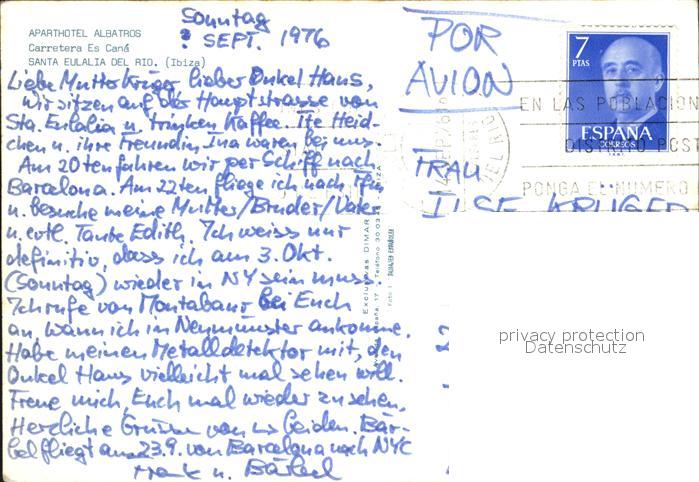 Sonntag
? SEPT. 1976
APARTHOTEL ALBATROS
Carretera Es Caná
SANTA EULALIA DEL RIO. (Ibiza)
Liebe Mutter Krüger, lieber Onkel Hans,
wir sitzen auf der Hauptstrasse von
Sta. Eulalia u. trinken Kaffee. Ite Heid-
chen u. ihre Freundin Ina waren bei uns.
Am 20ten fahren wir per Schiff nach
Barcelona. Am 22ten fliege ich nach
u. besuche meine Mutter/Bruder/Vater
u. evtl. Tante Edith. Ich weiss nur
definitiv, dass ich am 3. Okt.
(Sonntag) wieder in NY sein muss.
Ich rufe von Montabaur bei Euch
an, wann ich in Neumünster ankomme.
Habe meinen Metalldetektor mit, den
Onkel Hans vielleicht mal sehen will.
Freue mich, Euch mal wieder zu sehen.
Herzliche Grüsse von uns beiden. Bär-
bel fliegt am 23.9. von Barcelona nach NYC
Frank u. Bärbel
POR
AVION
7
PTAS
ESPAÑA
CORREOS
EN LAS POBLACION
DISTRITO POST
PONGA EL NUMERO
FRAU
ILSE KRÜGER
Exclusivas DIMAR
privacy protection
Datenschutz